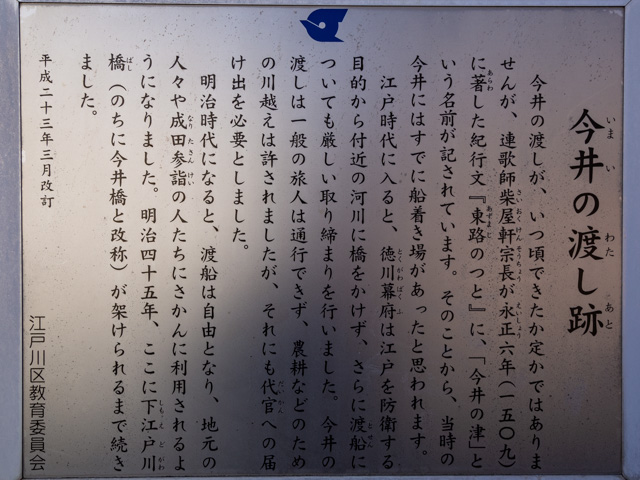 今井の渡し跡
今井の渡しが、いつ頃できたか定かではありま
せんが、連歌師柴屋軒宗長が永正六年(一五〇九)
に著した紀行文『東路のつと』に、「今井の津」と
いう名前が記されています。そのことから、当時の
今井にはすでに船着き場があったと思われます。
江戸時代に入ると、徳川幕府は江戸を防衛する
目的から付近の河川に橋をかけず、さらに渡船に
ついても厳しい取り締まりを行いました。今井の
渡しは一般の旅人は通行できず、農耕などのため
の川越えは許されましたが、それにも代官への届
け出を必要としました。
明治時代になると、渡船は自由となり、地元の
人々や成田参詣の人たちにさかんに利用されるよ
うになりました。明治四十五年、ここに下江戸川
橋(のちに今井橋と改称)が架けられるまで続き
ました。
平成二十三年三月改訂
江戸川区教育委員会